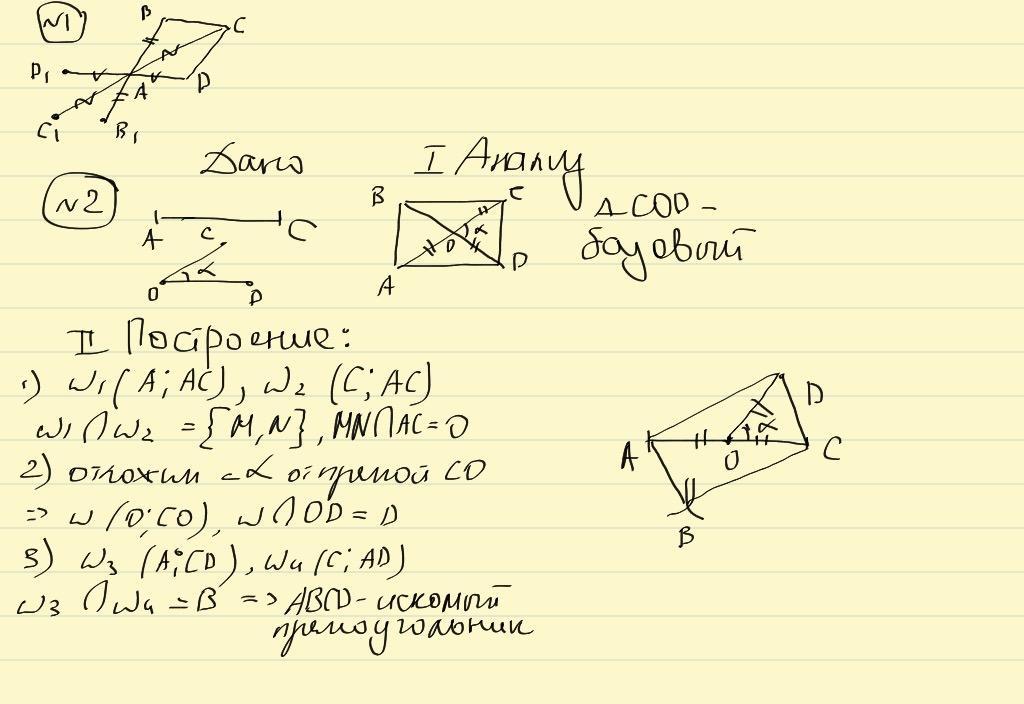 N1
B
C
D1
A
D
C1
B1
N2
Дано
I Анализ
A C
C
α
O D
B C
α
O
A D
△COD -
базовый
II Построение:
1) ω1(A; AC), ω2 (C; AC)
ω1 ∩ ω2 = {M, N}, MN∩AC=O
2) отложим ∠α от прямой CO
=> ω (O; CO), ω ∩ OD = D
3) ω3 (A; CD), ω4 (C; AD)
ω3 ∩ ω4 = B => ABCD - искомый
прямоугольник
D
α
A O C
B